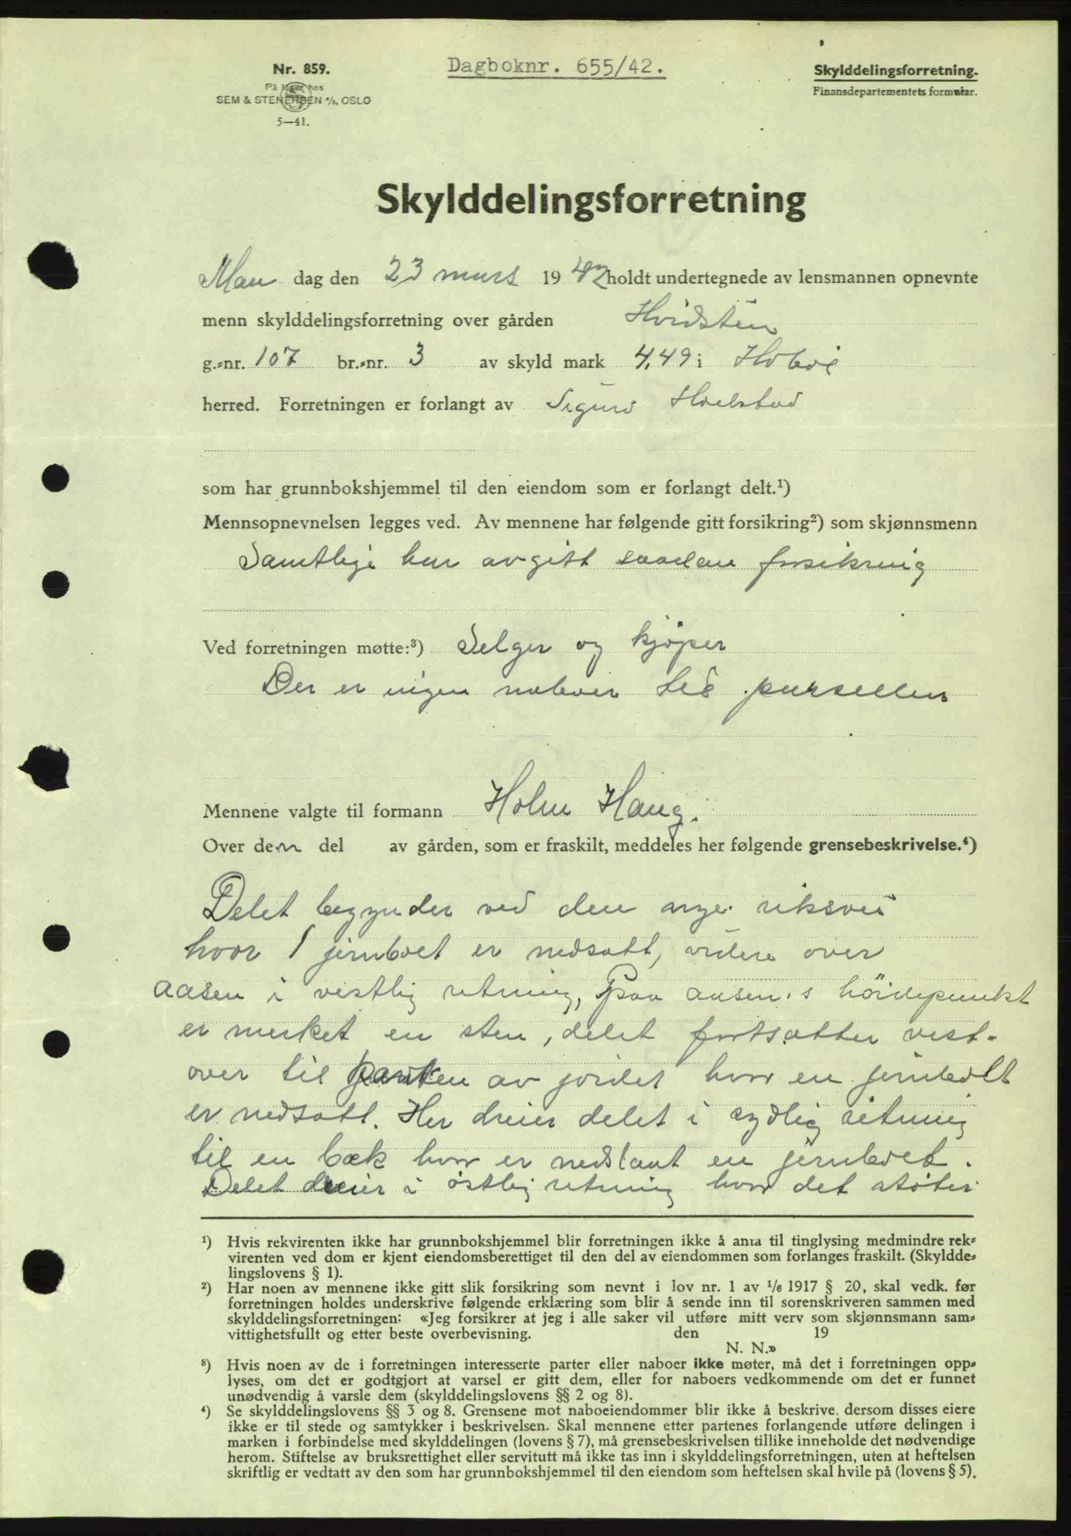 Nr. 859.
På lager hos
SEM & STENERSEN A/S, OSLO
5—41.
Dagboknr. 655/42.
Skylddelingsforretning.
Finansdepartementets formular.
Skylddelingsforretning
Man dag den 23 mars 19 42 holdt undertegnede av lensmannen opnevnte
menn skylddelingsforretning over gården Hvidsten
g.-nr. 107 br.-nr. 3 av skyld mark 4,49 i Hobøl
herred. Forretningen er forlangt av Sigurd Hoelstad
som har grunnbokshjemmel til den eiendom som er forlangt delt.¹)
Mennsopnevnelsen legges ved. Av mennene har følgende gitt forsikring²) som skjønnsmenn
Samtlige har avgitt saadan forsikring
Ved forretningen møtte:³) Selger og kjøper
Der er ingen naboer til parsellen
Mennene valgte til formann Holm Haug.
Over den del av gården, som er fraskilt, meddeles her følgende grensebeskrivelse.⁴)
Delet begynder ved den nye riksvei
hvor 1 jernbolt er nedsatt, videre over
aasen i vestlig retning, Paa aasen's høidepunkt
er merket en sten, delet fortsætter vest-
over til kanten av jordet hvor en jernbolt
er nedsatt. Her dreier delet i sydlig retning
til en bæk hvor er nedslaat en jernbolt.
Delet dreier i østlig retning hvor det støter
¹) Hvis rekvirenten ikke har grunnbokshjemmel blir forretningen ikke å anta til tinglysing medmindre rek-
virenten ved dom er kjent eiendomsberettiget til den del av eiendommen som forlanges fraskilt. (Skyldde-
lingslovens § 1).
²) Har noen av mennene ikke gitt slik forsikring som nevnt i lov nr. 1 av 1/6 1917 § 20, skal vedk. før
forretningen holdes underskrive følgende erklæring som blir å sende inn til sorenskriveren sammen med
skylddelingsforretningen: «Jeg forsikrer at jeg i alle saker vil utføre mitt verv som skjønnsmann sam-
vittighetsfullt og etter beste overbevisning. den 19
N. N.»
³) Hvis noen av de i forretningen interesserte parter eller naboer ikke møter, må det i forretningen opp-
lyses, om det er godtgjort at varsel er gitt dem, eller for naboers vedkommende om det er funnet
unødvendig å varsle dem (skylddelingslovens §§ 2 og 8).
⁴) Se skylddelingslovens §§ 3 og 8. Grensene mot naboeiendommer blir ikke å beskrive, dersom disses eiere
ikke er til stede og samtykker i beskrivelsen. Skal mennene etter partenes forlangende utføre delingen i
marken i forbindelse med skylddelingen (lovens § 7), må grensebeskrivelsen tillike inneholde det nødvendige
herom. Stiftelse av bruksrettighet eller servitutt må ikke tas inn i skylddelingsforretningen, uten at heftelsen
skriftlig er vedtatt av den som har grunnbokshjemmel til den eiendom som heftelsen skal hvile på (lovens § 5).